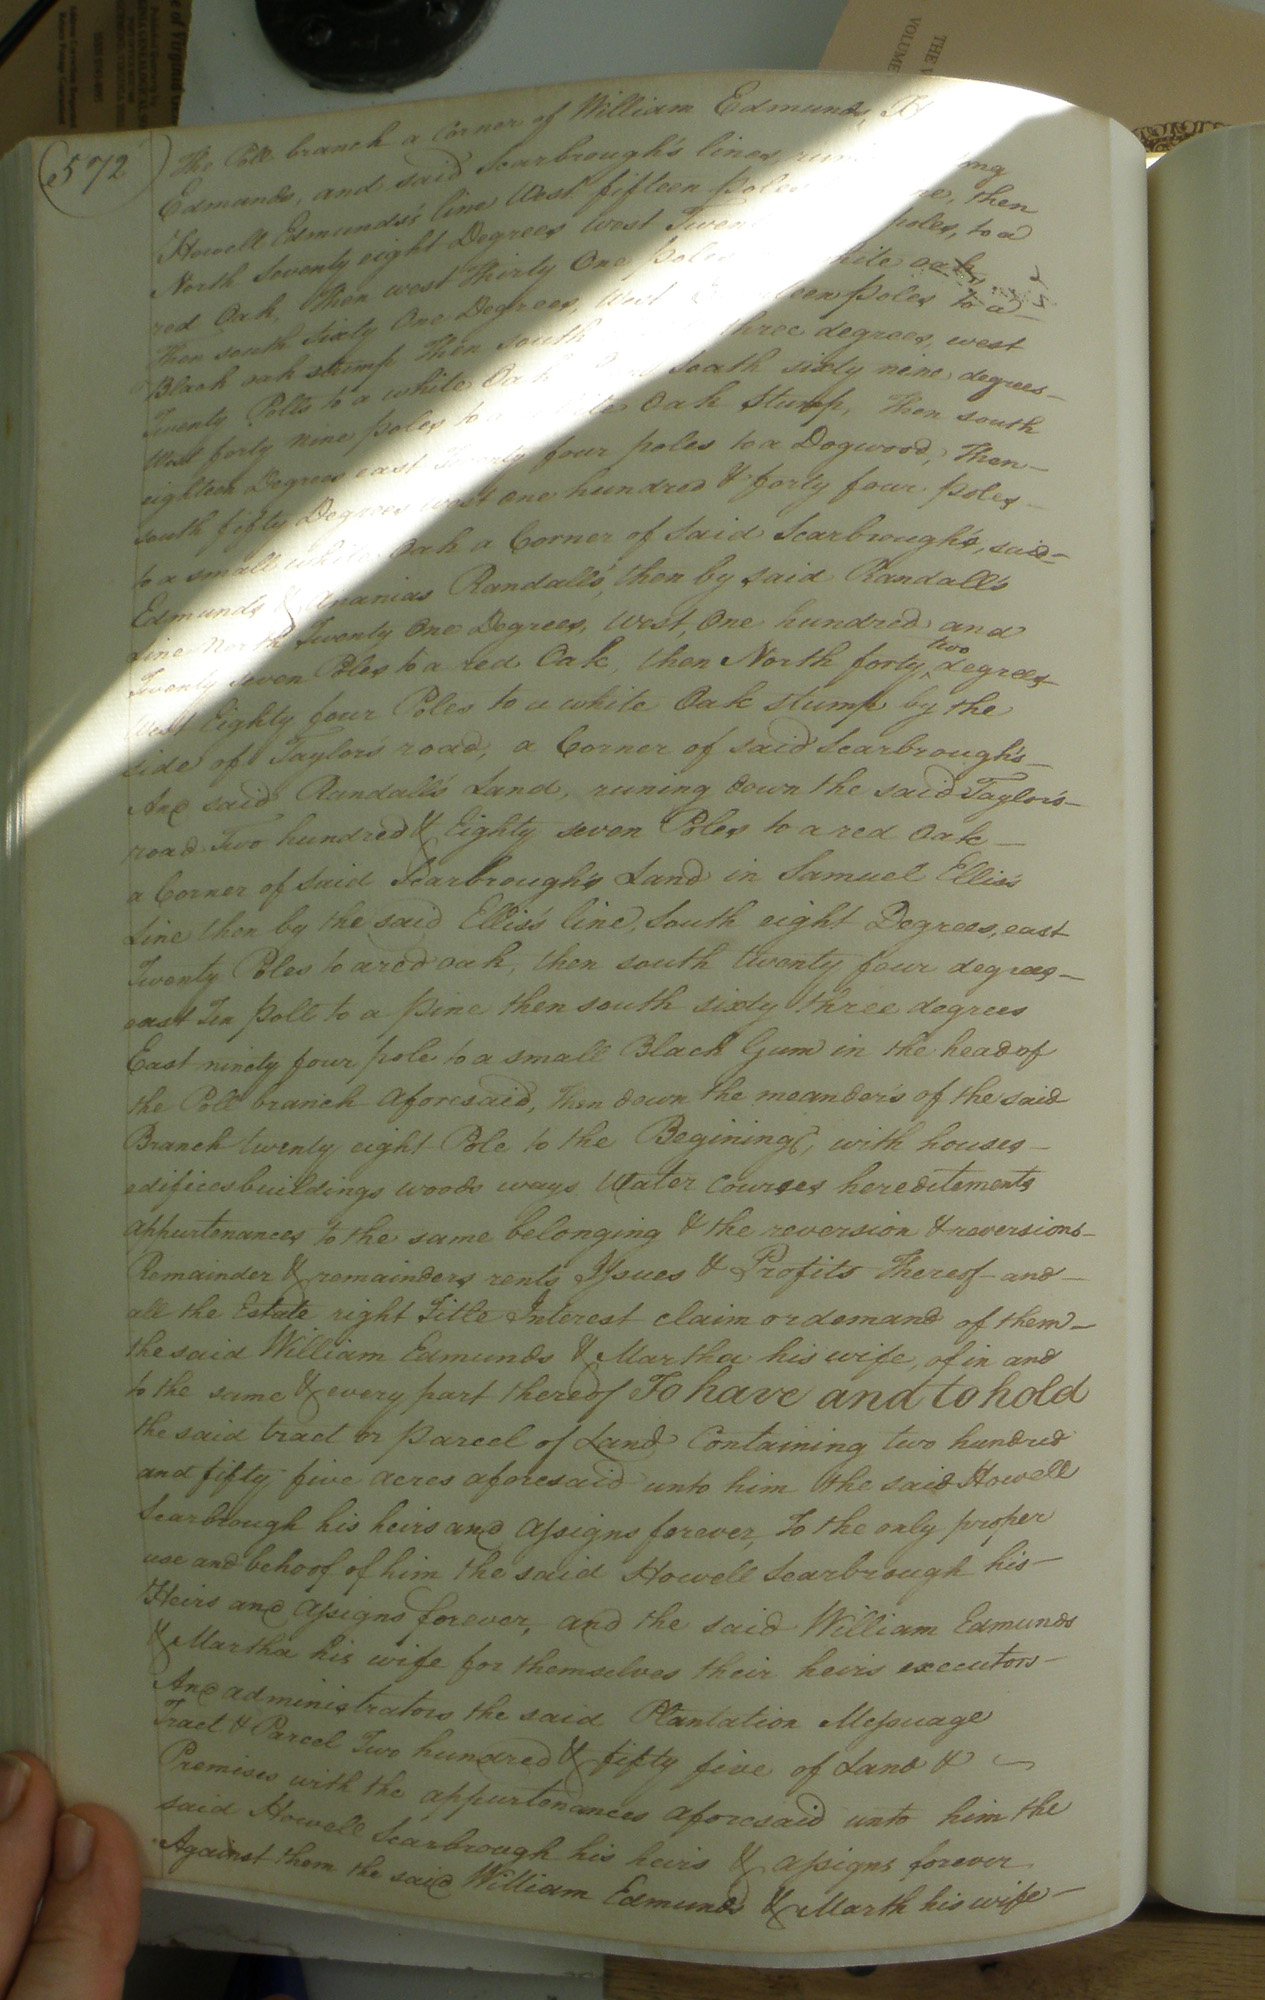 572
The Poll branch a Corner of William Edmunds,
Edmunds, and said Scarbrough's lines,
Howell Edmunds's line West fifteen poles then
North seventy eight Degrees west poles, to a
red Oak, then west thirty One poles white oak,
then south sixty One Degrees, West poles to a
Black oak stump then south three degrees, west
Twenty Polls to a white Oak south sixty nine degrees
West forty nine poles to a white Oak Stump, then south
eighteen Degrees east Twenty four poles to a Dogwood, Then
south fifty Degrees west one hundred & forty four poles
to a small white Oak a Corner of said Scarbrough's, said
Edmunds & Ananias Randall's, then by said Randall's
line North Twenty One Degrees, West, One hundred and
Twenty seven Poles to a red Oak, then North forty two degrees
West Eighty four Poles to a white Oak stump by the
side of Taylor's road, a Corner of said Scarbrough's
And said Randall's Land, runing down the said Taylor's
road Two hundred & Eighty seven Poles to a red Oak
a Corner of said Scarbrough's Land in Samuel Ellis's
Line then by the said Ellis's line, South eight Degrees, east
Twenty Poles to a red oak, then south twenty four degrees
east Ten poll to a pine then south sixty three degrees
East ninety four pole to a small Black Gum in the head of
the Poll branch aforesaid, Then down the meander's of the said
Branch twenty eight Pole to the Begining, with houses
edifices buildings woods ways Water Courses hereditements
appurtenances to the same belonging & the reversion & reversions
Remainder & remainders rents Issues & Profits Thereof and
all the Estate right Title Interest claim or demand of them
the said William Edmunds & Martha his wife, of in and
to the same & every part thereof To have and to hold
the said tract or parcel of Land Containing two hundred
and fifty five acres aforesaid unto him the said Howell
Scarbrough his heirs and assigns forever, To the only proper
use and behoof of him the said Howell Scarbrough his
Heirs and Assigns forever, and the said William Edmunds
& Martha his wife for themselves their heirs executors
And administrators the said Plantation Messuage
Tract & Parcel Two hundred & fifty five of Land &
Premises with the appurtenances aforesaid unto him the
said Howell Scarbrough his heirs & assigns forever
Against them the said William Edmunds & Marth his wife
THE V
VOLUME